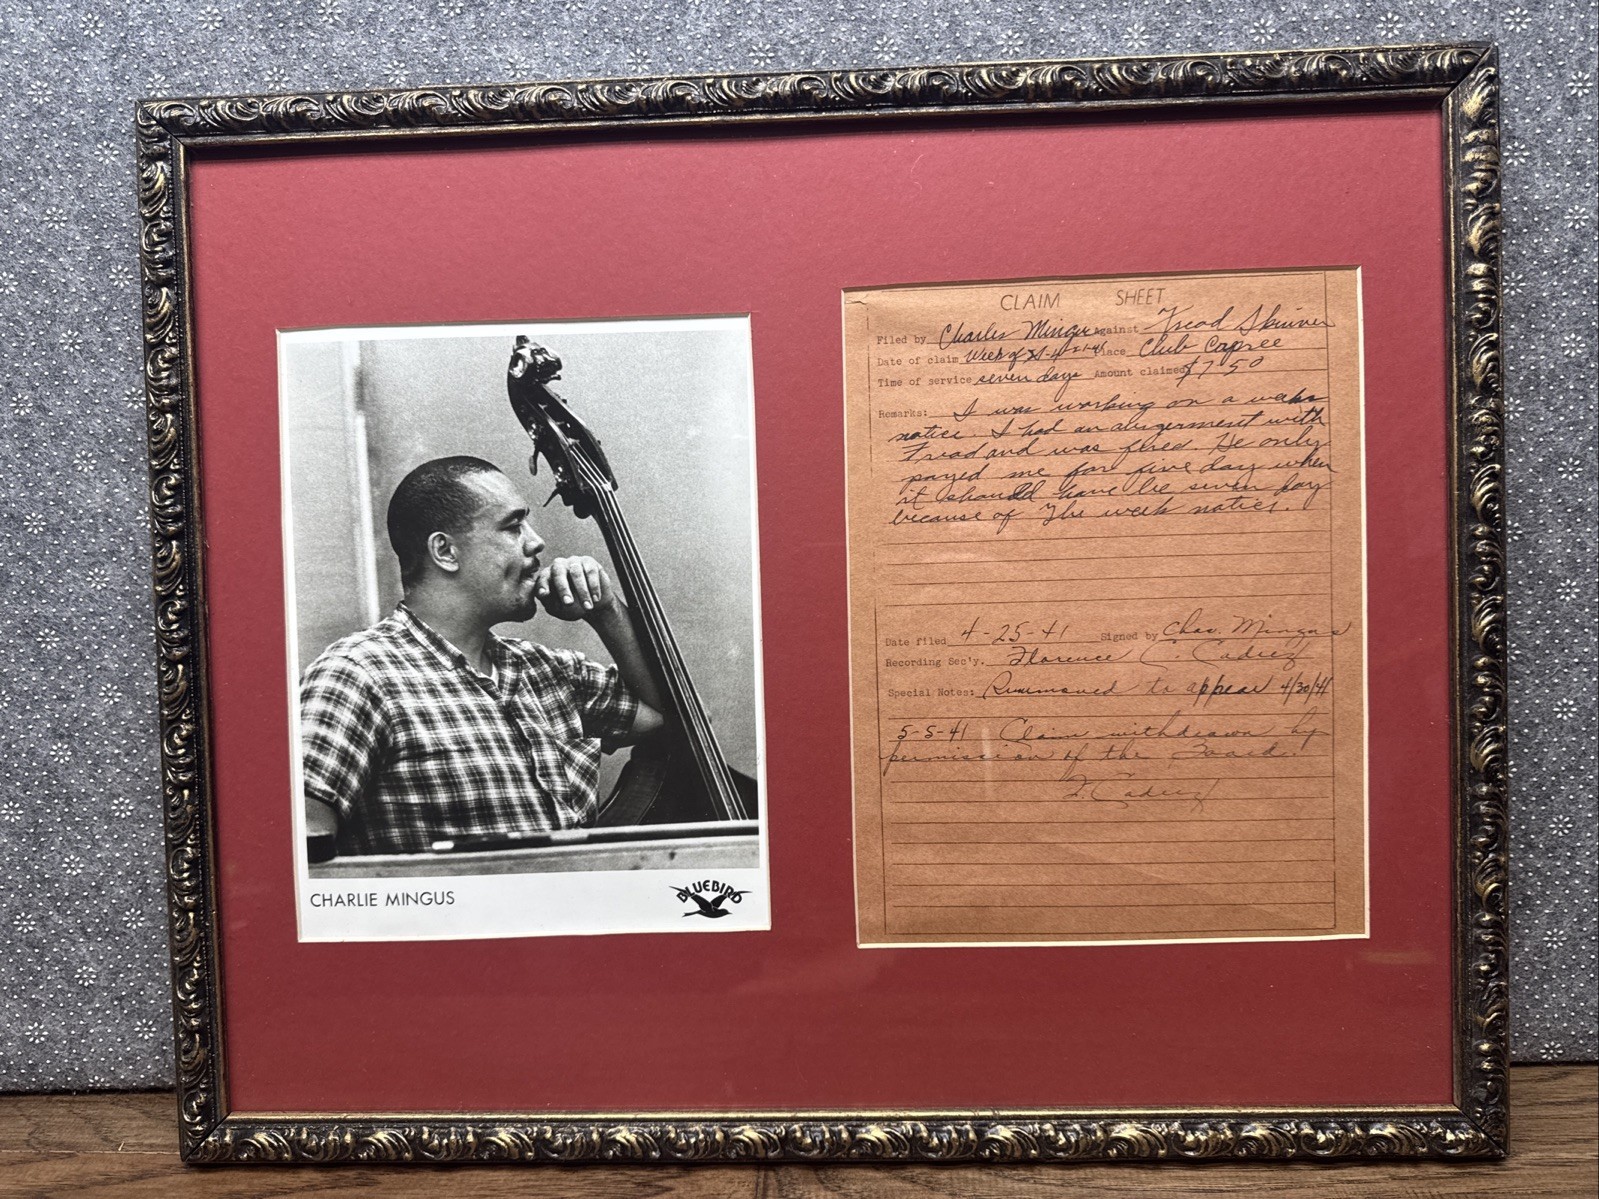 CHARLIE MINGUS
BLUEBIRD
CLAIM SHEET
Filed by Charles Mingus Against Fread Skinner
Date of claim Week of 4-21-41 Place Club Capree
Time of service seven days Amount claimed $7.50
Remarks: I was working on a weaks
notice. I had an with
Fread and was fired. He only
payed me for five day when
it should have be seven day
because of The week notice.
Date filed 4-25-41 Signed by Chas. Mingus
Recording Sec'y. Florence C. Cadrez
Special Notes: Summoned to appear 4/30/41
5-5-41 Claim withdrawn by
permission of the Board.
F. Cadrez